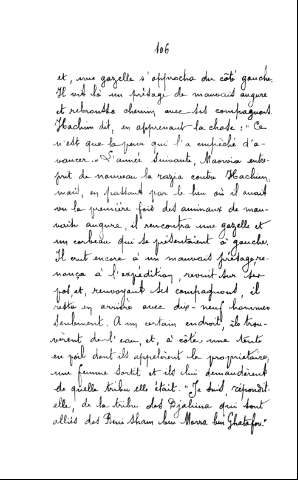 106
et, une gazelle s'approcha du côté gauche.
Il vit là un présage de mauvais augure
et rebroussa chemin avec ses compagnons.
Hachim dit, en apprenant la chose : "Ce
n'est que la peur qui l'a empêché d'a-
vancer." L'année suivante, Maovia entre-
prit de nouveau la razia contre Hachim,
mais, en passant par le lieu où il avait
vu la première fois des animaux de mau-
vais augure, il rencontra une gazelle et
un corbeau qui se présentaient à gauche.
Il crut encore à un mauvais présage re-
nonça à l'expédition, revint sur ses
pas et, renvoyant ses compagnons, il
resta en arrière avec dix-neuf hommes
seulement. A un certain endroit, ils trou-
vèrent de l'eau, et, à côté, une tente
en poil dont ils appelèrent le propriétaire,
une femme sortit et ils lui demandèrent
de quelle tribu elle était. "Je suis, répondit
elle, de la tribu des Djahina qui sont
alliés des Beni Sham ben Morra ben Ghatafan"